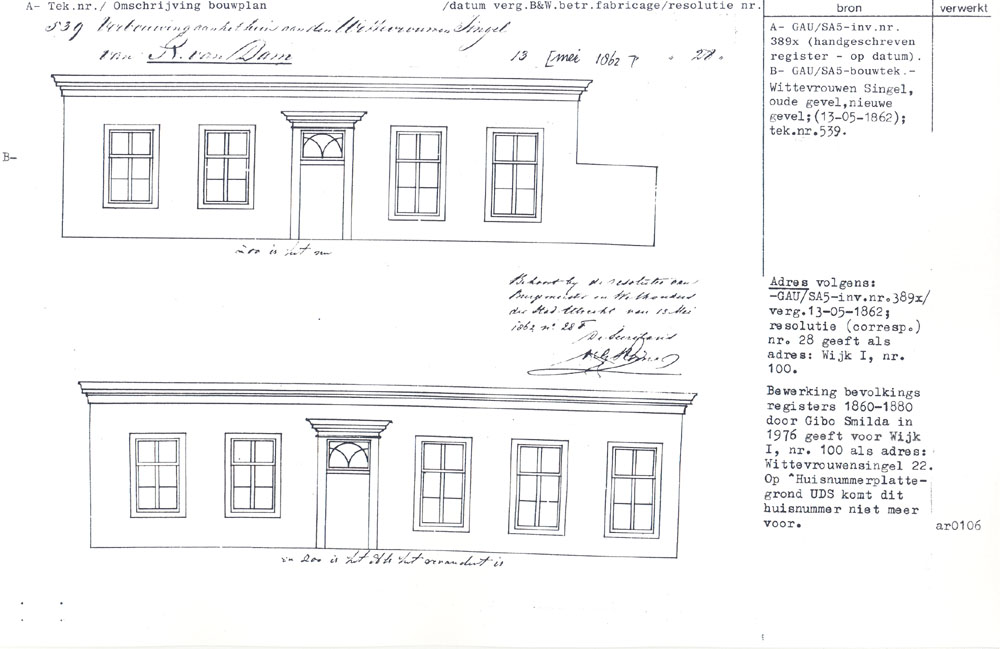 A- Tek.nr./ Omschrijving bouwplan /datum verg.B&W.betr.fabricage/resolutie nr.
bron verwerkt
539 Verbouwing aan het huis aan den Wittevrouwen Singel
van R. van Dam 13 [mei 1862 28.
A- GAU/SA5-inv.nr.
389x (handgeschreven
register - op datum).
B- GAU/SA5-bouwtek.-
Wittevrouwen Singel,
oude gevel,nieuwe
gevel;(13-05-1862);
tek.nr.539.
B-
zoo is het nu
Behoort bij de resolutie van
Burgemeester en Wethouders
der Stad Utrecht van 13 Mei
1862 no. 28
De Secretaris
Adres volgens:
-GAU/SA5-inv.nr.389x/
verg.13-05-1862;
resolutie (corresp.)
nr. 28 geeft als
adres: Wijk I, nr.
100.
Bewerking bevolkings
registers 1860-1880
door Gibo Smilda in
1976 geeft voor Wijk
I, nr. 100 als adres:
Wittevrouwensingel 22.
Op ^Huisnummerplatte-
grond UDS komt dit
huisnummer niet meer
voor.
ar0106
en zoo is het als het verandert is